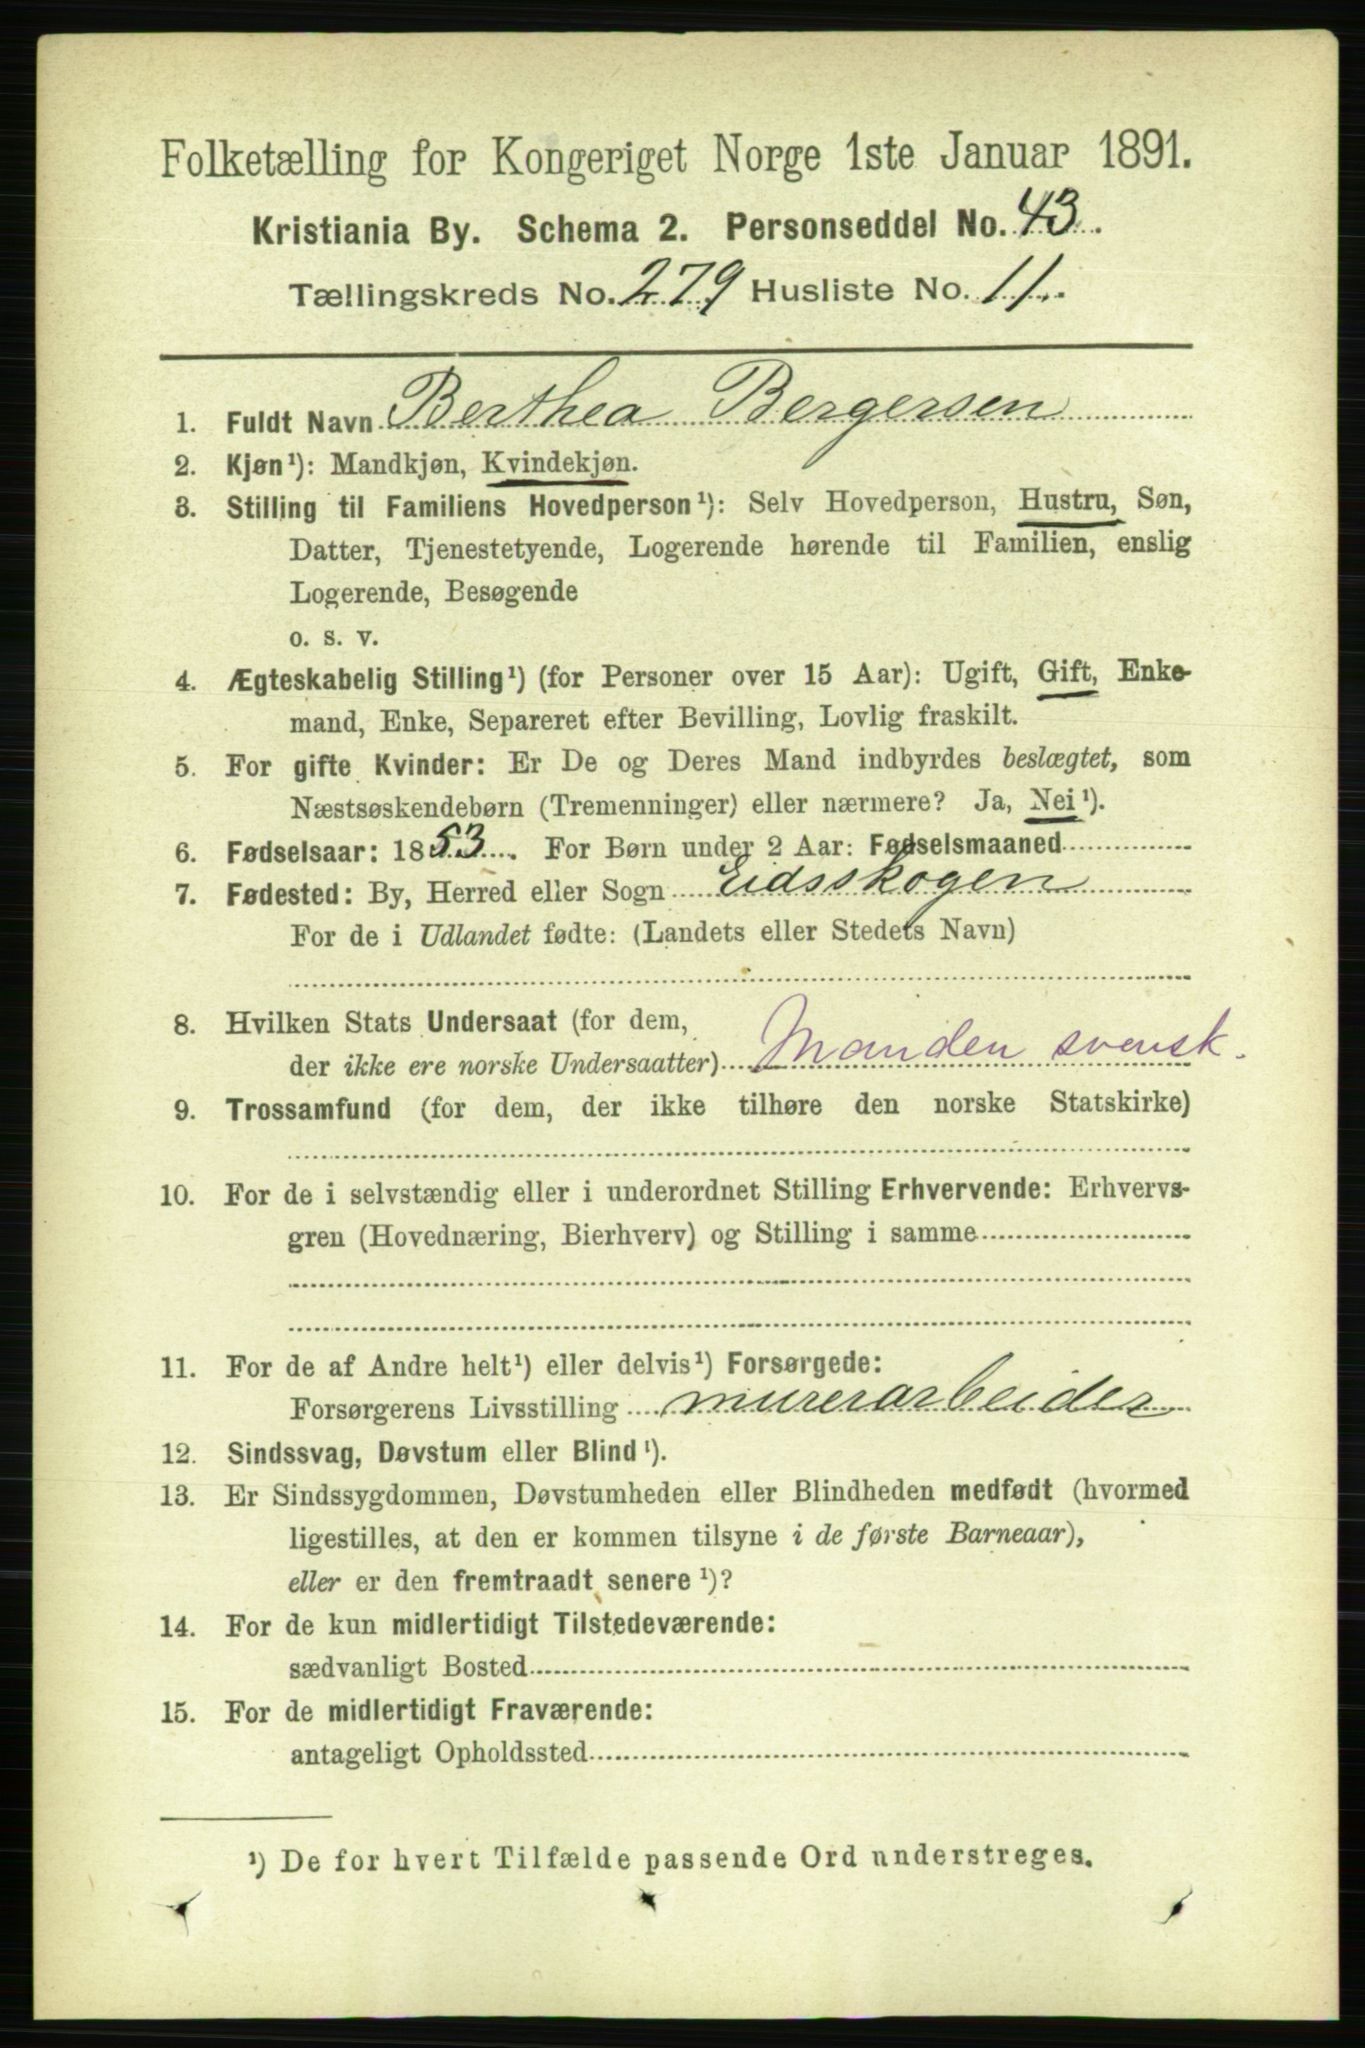 Folketælling for Kongeriget Norge 1ste Januar 1891.
Kristiania By. Schema 2. Personseddel No. 43.
Tællingskreds No. 279 Husliste No. 11.
1. Fuldt Navn Berthea Bergersen
2. Kjøn¹): Mandkjøn, Kvindekjøn.
3. Stilling til Familiens Hovedperson¹): Selv Hovedperson, Hustru, Søn,
Datter, Tjenestetyende, Logerende hørende til Familien, enslig
Logerende, Besøgende
o. s. v.
4. Ægteskabelig Stilling¹) (for Personer over 15 Aar): Ugift, Gift, Enke-
mand, Enke, Separeret efter Bevilling, Lovlig fraskilt.
5. For gifte Kvinder: Er De og Deres Mand indbyrdes beslægtet, som
Næstsøskendebørn (Tremenninger) eller nærmere? Ja, Nei¹).
6. Fødselsaar: 1853. For Børn under 2 Aar: Fødselsmaaned
7. Fødested: By, Herred eller Sogn Eidsskogen
For de i Udlandet fødte: (Landets eller Stedets Navn)
8. Hvilken Stats Undersaat (for dem,
der ikke ere norske Undersaatter) Manden svensk.
9. Trossamfund (for dem, der ikke tilhøre den norske Statskirke)
10. For de i selvstændig eller i underordnet Stilling Erhvervende: Erhvervs-
gren (Hovednæring, Bierhverv) og Stilling i samme
11. For de af Andre helt¹) eller delvis¹) Forsørgede:
Forsørgerens Livsstilling murerarbeider
12. Sindssvag, Døvstum eller Blind¹).
13. Er Sindssygdommen, Døvstumheden eller Blindheden medfødt (hvormed
ligestilles, at den er kommen tilsyne i de første Barneaar),
eller er den fremtraadt senere¹)?
14. For de kun midlertidigt Tilstedeværende:
sædvanligt Bosted
15. For de midlertidigt Fraværende:
antageligt Opholdssted
¹) De for hvert Tilfælde passende Ord understreges.